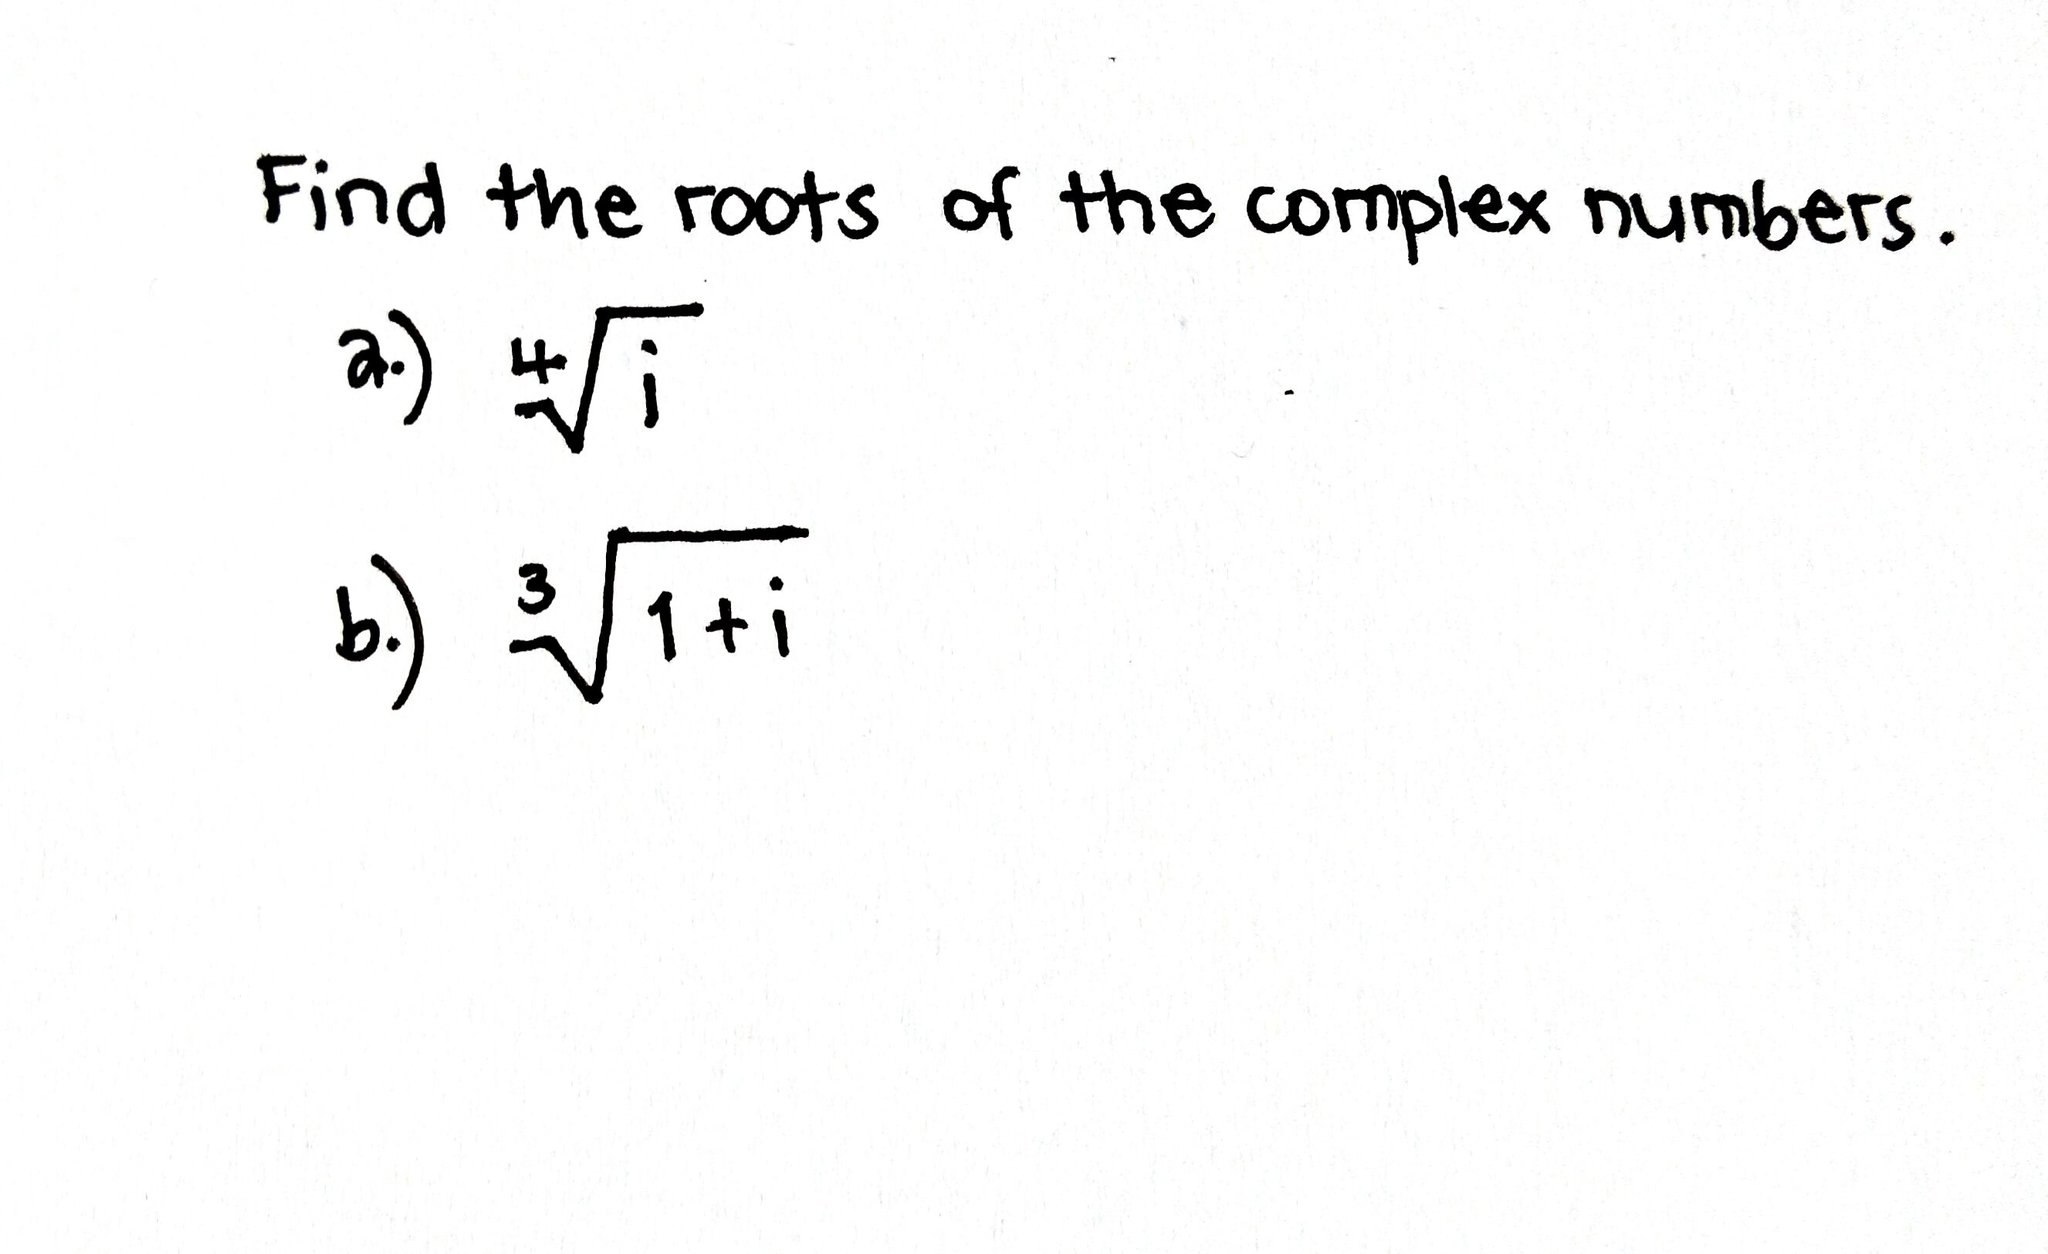 Find the roots of the complex numbers.
a.) ∜i
b.) ∛1+i